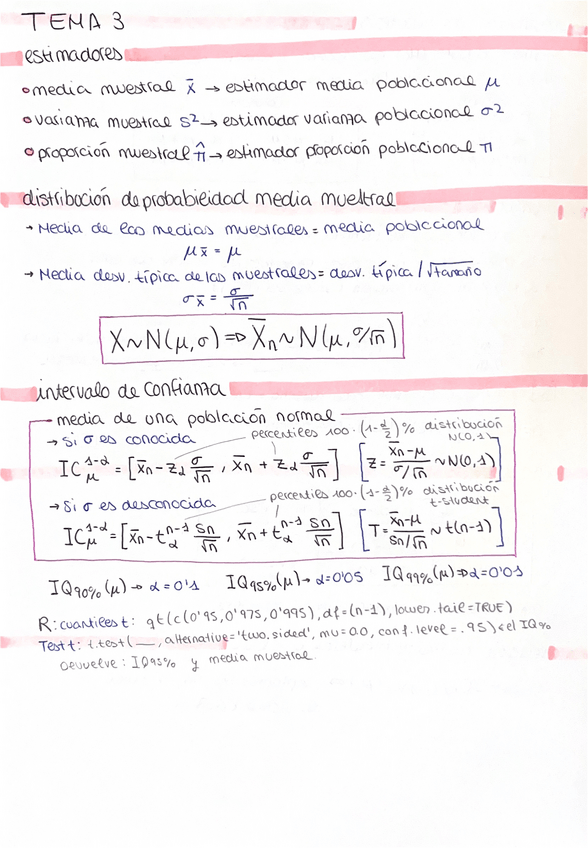 TEMA 3
estimadores
• media muestral x̄ → estimador media poblacional μ
• varianza muestral s² → estimador varianza poblacional σ2
• proporción muestral π̂ → estimador proporción poblacional π
distribución de probabilidad media muestral
→ Media de las medias muestrales = media poblacional
μx̄ = μ
→ Media desv. típica de las muestrales = desv. típica / √tamaño
σx̄ = σ/√n
X~N(μ,σ) ⇒ X̄n~N(μ,σ/√n)
intervalo de confianza
media de una población normal
→ Si σ es conocida
percentiles 100·(1-α/2)% distribución N(0,1)
ICμ^1-α = [x̄n - zα σ/√n , x̄n + zα σ/√n] [z = x̄n-μ / σ/√n ~ N(0,1)]
→ Si σ es desconocida
percentiles 100·(1-α/2)% distibución t-student
ICμ^1-α = [x̄n - tα^n-1 sn/√n , x̄n + tα^n-1 sn/√n] [T = x̄n-μ / sn/√n ~ t(n-1)]
IQ90%(μ) → α=0'1 IQ95%(μ) → α=0'05 IQ99%(μ) ⇒ α=0'01
R: cuantiles t: qt(c(0'95,0'975,0'995), df=(n-1), lower.tail=TRUE)
Test t: t.test(__, alternative='two.sided', mu=0.0, conf.level=.95) < el IQ%
Devuelve: IQ95% y media muestral.